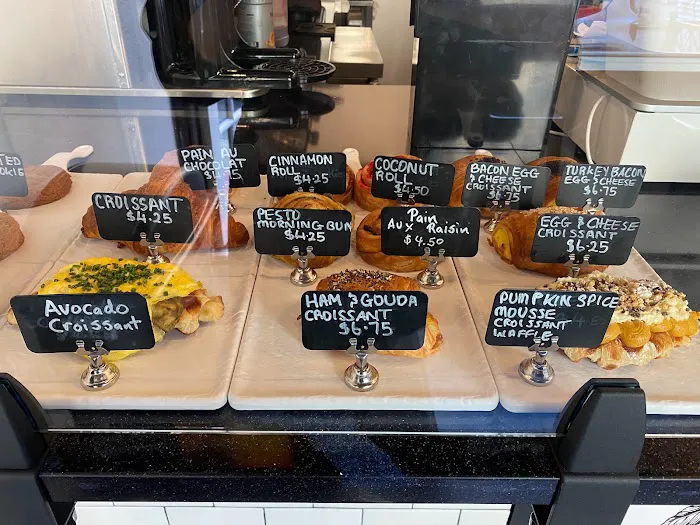 TED
OKIE
PAIN AU
CHOCOLAT
$4.75
CINNAMON
ROLL
$4.25
COCONUT
ROLL
$4.50
BACON EGG
& CHEESE
CROISSANT
$6.75
TURKEY BACON
EGG & CHEESE
$6.75
CROISSANT
$4.25
PESTO
MORNING BUN
$4.25
Pain
Aux Raisin
$4.50
EGG & CHEESE
CROISSANT
$6.25
Avocado
Croissant
HAM & GOUDA
CROISSANT
$6.75
PUMPKIN SPICE
MOUSSE
CROISSANT
WAFFLE